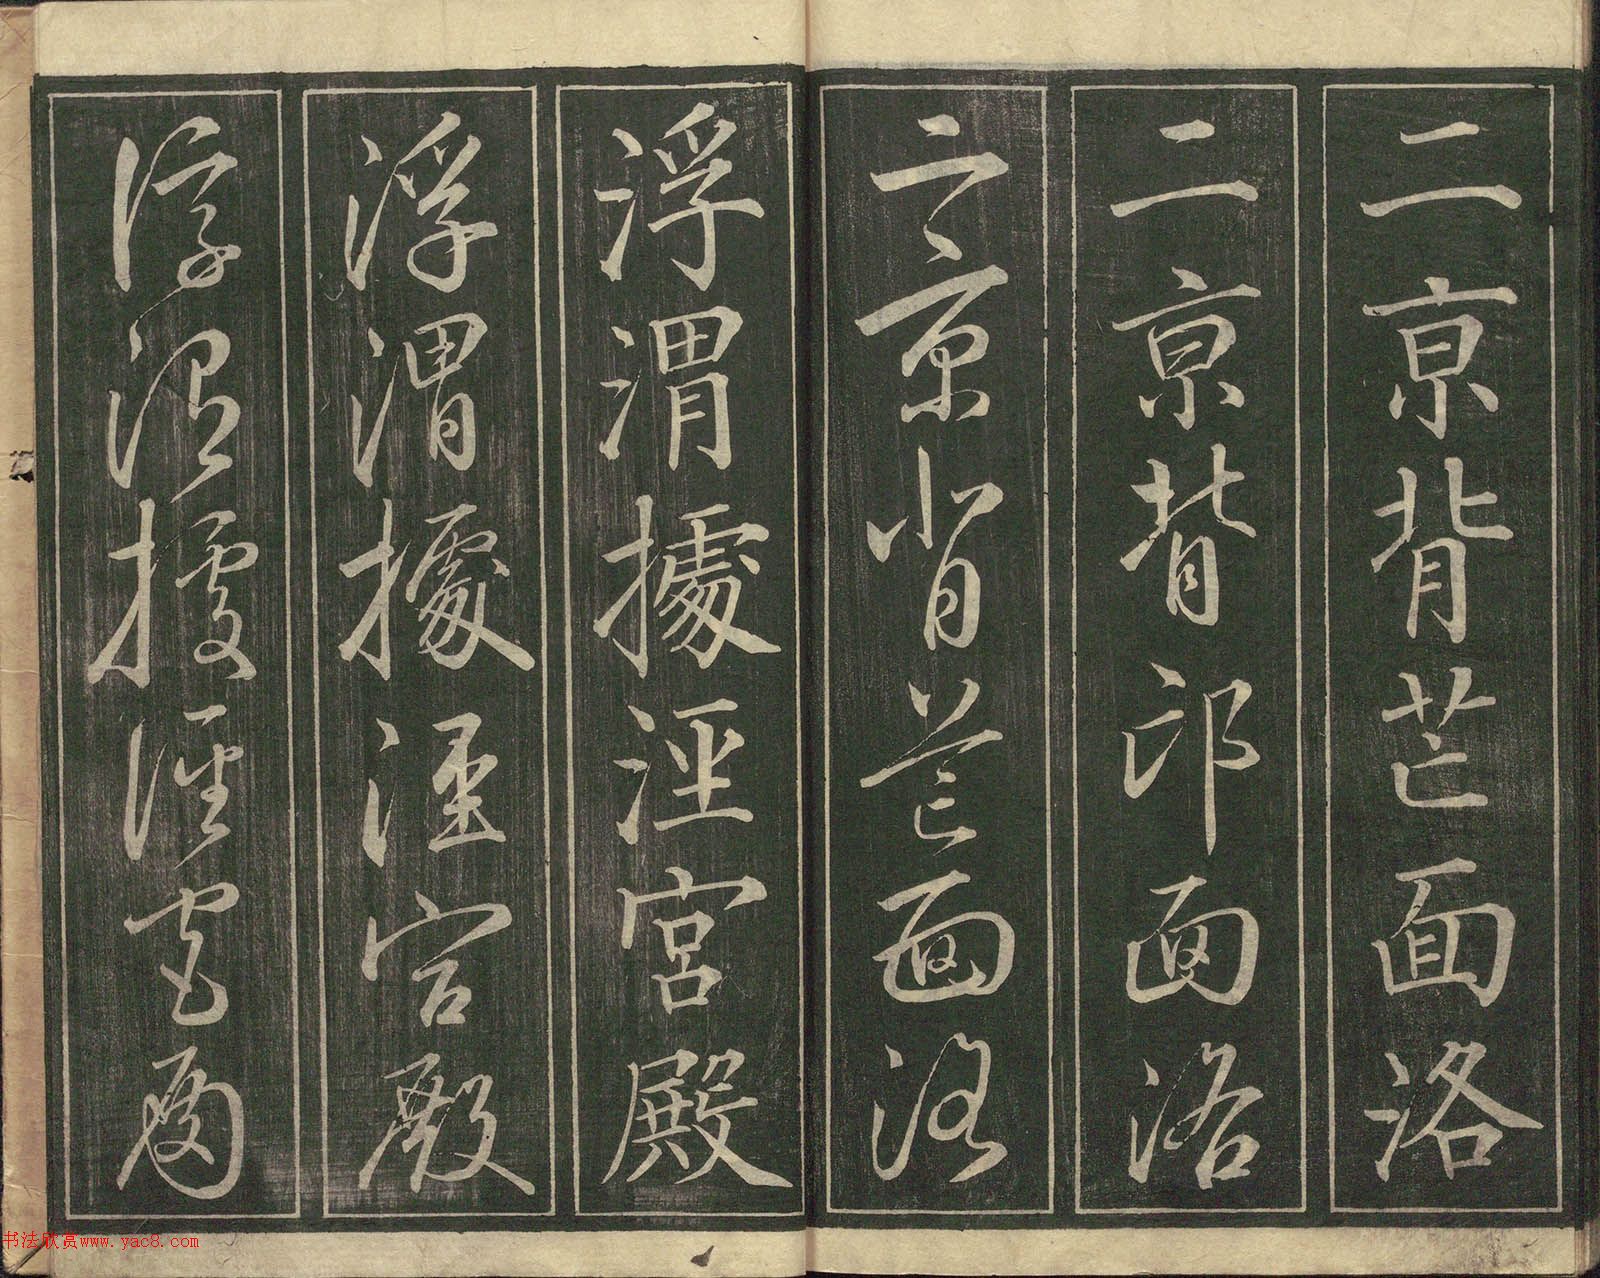 二京背芒面洛
二京背邙面洛
二京背芒面洛
浮渭據涇宮殿
浮渭據涇宮殿
浮渭據涇宮殿
书法欣赏www.yac8.com